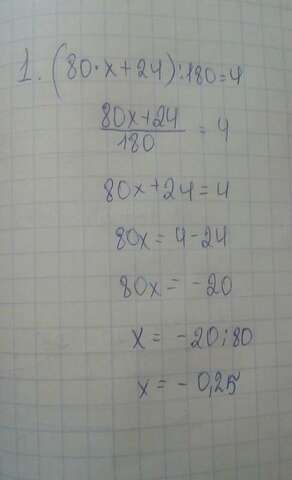 1. (80·x+24):180=4
80x+24
180
= 4
80x+24=4
80x=4-24
80x= -20
x= -20:80
x= -0,25